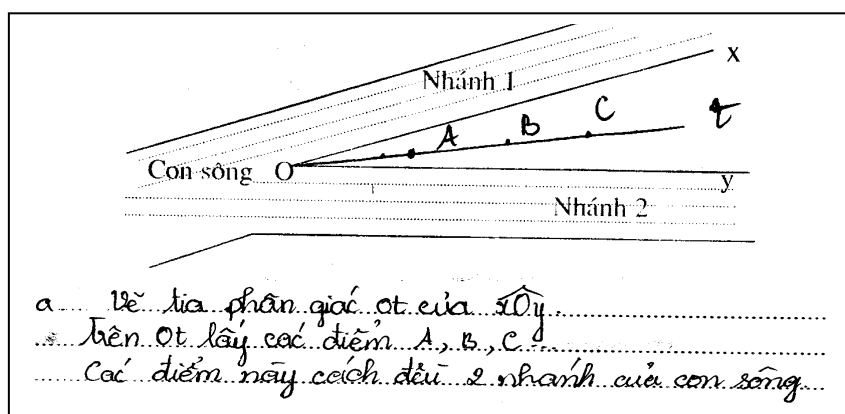 x
Nhánh 1
A B C t
Con sông O
y
Nhánh 2
a vẽ tia phân giác ot của xOy
trên Ot lấy các điểm A, B, C
Các điểm này cách đều 2 nhánh của con sông